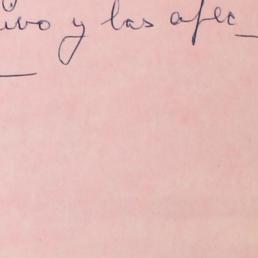 ivo y las afec_